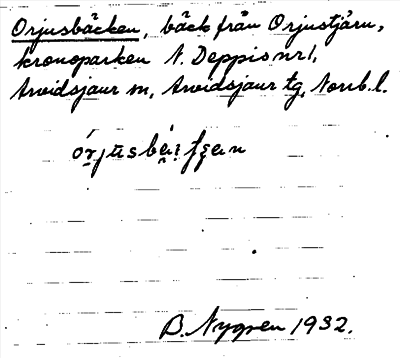 Orjusbäcken, bäck från Orjustjärn,
kronoparken N. Deppis nr 1,
Arvidsjaur sn, Arvidsjaur tg, Norrb. l.
B. Nygren 1932.